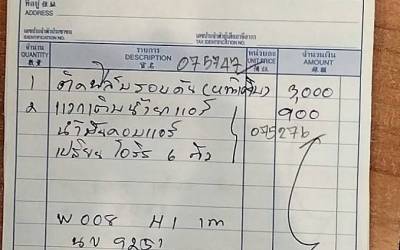 ที่อยู่
ADDRESS
เลขประจำตัวประชาชน
IDENTIFICATION NO.
เลขประจำตัวผู้เสียภาษีอากร
TAX IDENTIFICATION NO.
จำนวน รายการ หน่วยละ จำนวนเงิน
QUANTITY DESCRIPTION UNIT PRICE AMOUNT
數量 貨名 075747
1 ติดฟิล์มรอบคัน 3,000
2 เติมน้ำยาแอร์ 900
น้ำมันคอมแอร์ 075276
เปลี่ยน โอริง 6 ตัว
W 008 H1 1m
นข 9251